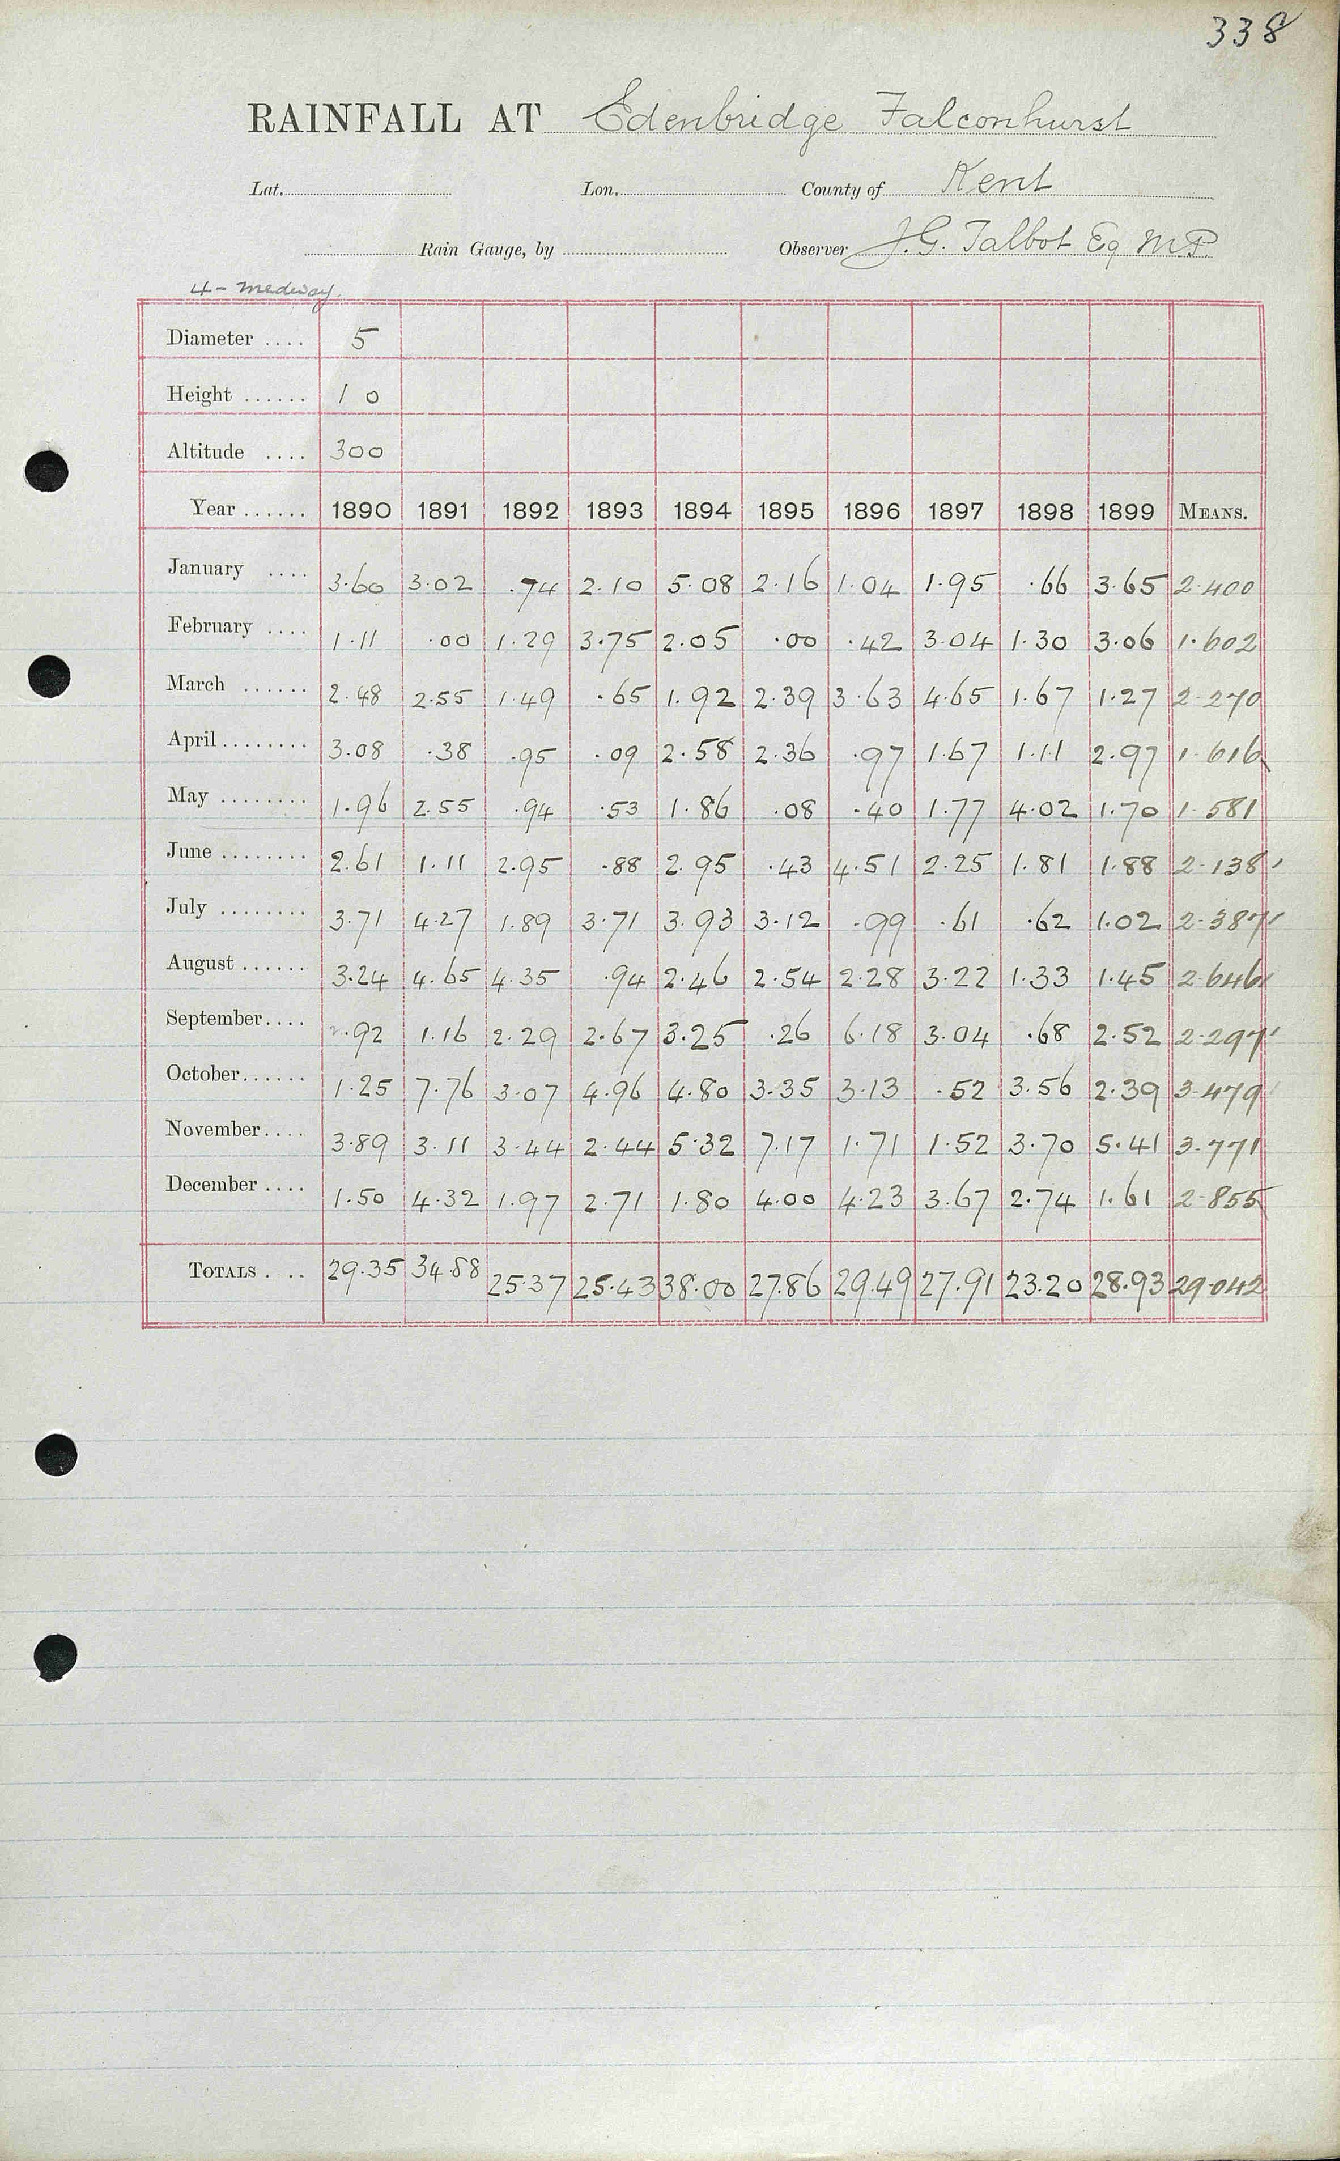 338
RAINFALL AT Edenbridge Falconhurst
Lat. Lon. County of Kent
Rain Gauge, by Observer J.G. Talbot Eq M.P.
4 - Medway.
Diameter .... 5
Height ...... 1 0
Altitude .... 300
Year ...... 1890 1891 1892 1893 1894 1895 1896 1897 1898 1899 MEANS.
January .... 3.60 3.02 .74 2.10 5.08 2.16 1.04 1.95 .66 3.65 2.400
February .... 1.11 .00 1.29 3.75 2.05 .00 .42 3.04 1.30 3.06 1.602
March ...... 2.48 2.55 1.49 .65 1.92 2.39 3.63 4.65 1.67 1.27 2.270
April ........ 3.08 .38 .95 .09 2.58 2.36 .97 1.67 1.11 2.97 1.616
May ........ 1.96 2.55 .94 .53 1.86 .08 .40 1.77 4.02 1.70 1.581
June ........ 2.61 1.11 2.95 .88 2.95 .43 4.51 2.25 1.81 1.88 2.138
July ........ 3.71 4.27 1.89 3.71 3.93 3.12 .99 .61 .62 1.02 2.387
August ...... 3.24 4.65 4.35 .94 2.46 2.54 2.28 3.22 1.33 1.45 2.646
September.... .92 1.16 2.29 2.67 3.25 .26 6.18 3.04 .68 2.52 2.297
October...... 1.25 7.76 3.07 4.96 4.80 3.35 3.13 .52 3.56 2.39 3.479
November.... 3.89 3.11 3.44 2.44 5.32 7.17 1.71 1.52 3.70 5.41 3.771
December .... 1.50 4.32 1.97 2.71 1.80 4.00 4.23 3.67 2.74 1.61 2.855
TOTALS . .. 29.35 34.88 25.37 25.43 38.00 27.86 29.49 27.91 23.20 28.93 29.042